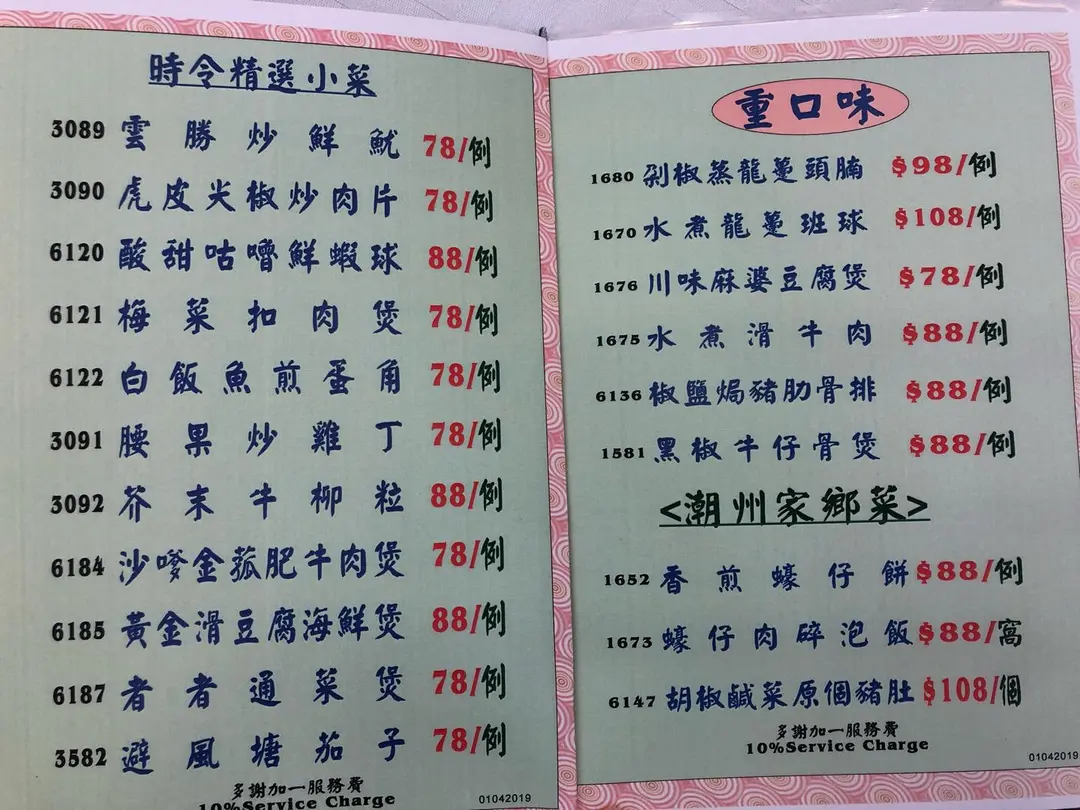 時令精選小菜
3089 雲勝炒鮮魷 78/例
3090 虎皮尖椒炒肉片 78/例
6120 酸甜咕嚕鮮蝦球 88/例
6121 梅菜扣肉煲 78/例
6122 白飯魚煎蛋角 78/例
3091 腰果炒雞丁 78/例
3092 芥末牛柳粒 88/例
6184 沙嗲金菰肥牛肉煲 78/例
6185 黃金滑豆腐海鮮煲 88/例
6187 者者通菜煲 78/例
3582 避風塘茄子 78/例
多謝加一服務費
10%Service Charge
01042019
重口味
1680 剁椒蒸龍躉頭腩 $98/例
1670 水煮龍躉班球 $108/例
1676 川味麻婆豆腐煲 $78/例
1675 水煮滑牛肉 $88/例
6136 椒鹽焗豬肋骨排 $88/例
1581 黑椒牛仔骨煲 $88/例
<潮州家鄉菜>
1652 香煎蠔仔餅 $88/例
1673 蠔仔肉碎泡飯 $88/窩
6147 胡椒鹹菜原個豬肚 $108/個
多謝加一服務費
10%Service Charge
01042019